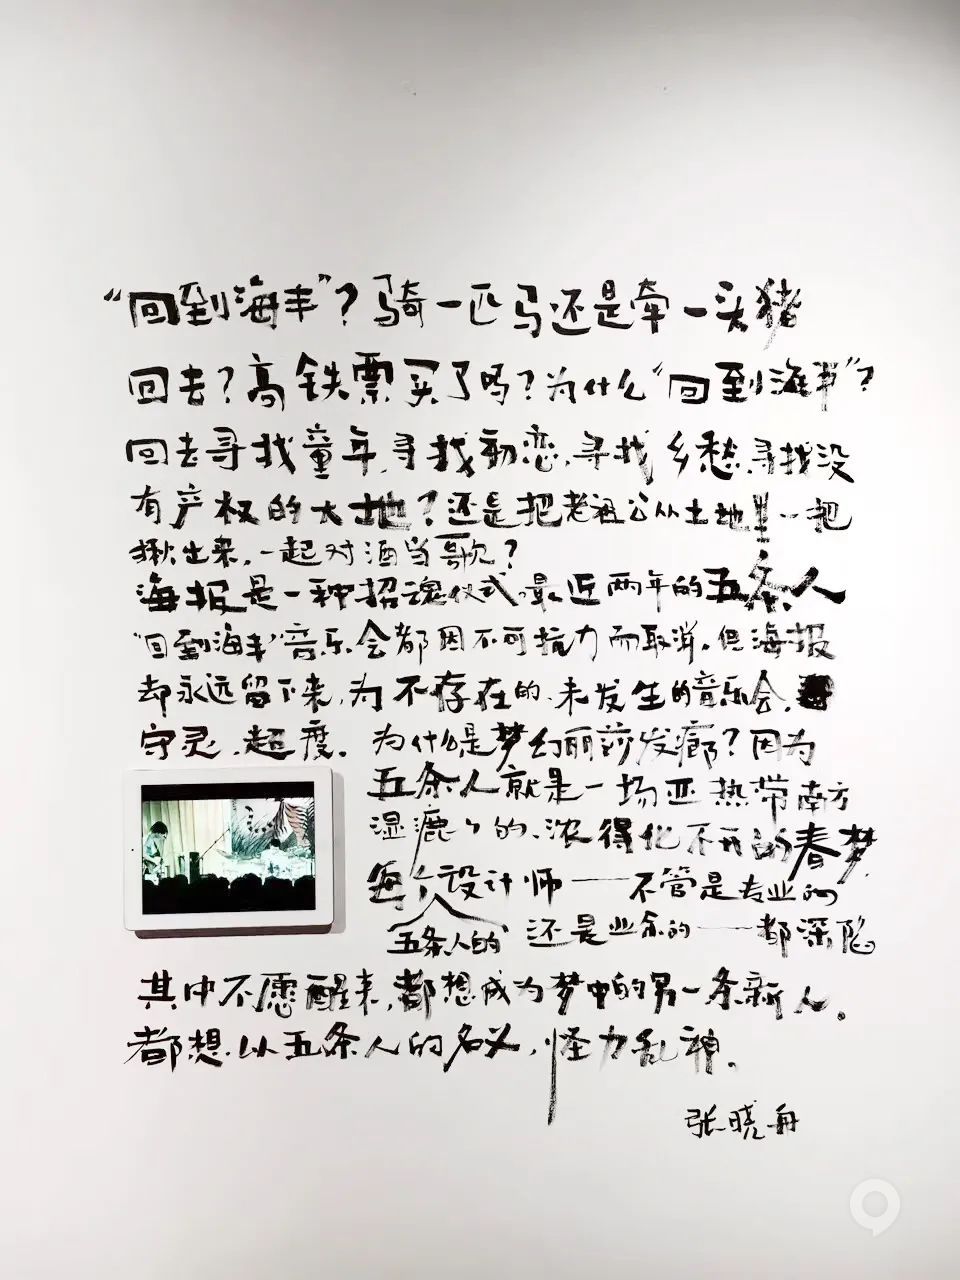 “回到海丰”？骑一匹马还是牵一头猪
回去？高铁票买了吗？为什么“回到海丰”？
回去寻找童年，寻找初恋，寻找乡愁，寻找没
有产权的大地？还是把老祖公从土地里一把
揪出来，一起对酒当歌？
海报是一种招魂仪式。最近两年的五条人
“回到海丰”音乐会都因不可抗力而取消。但海报
却永远留下来，为不存在的、未发生的音乐会，
守灵、超度。为什么是梦幻丽莎发廊？因为
五条人就是一场亚热带南方
湿漉漉的、浓得化不开的春梦
每个设计师——不管是专业的
五条人的
还是业余的——都深陷
其中不愿醒来，都想成为梦中的另一条新人。
都想以五条人的名义，怪力乱神。
张晓舟